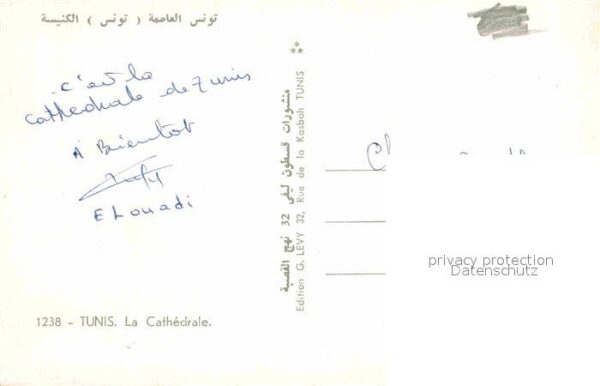 تونس العاصمة ( تونس ) الكنيسة
c'est la
Cathédrale de Tunis
A Bientot
ELouadi
1238 - TUNIS. La Cathédrale.
منشورات قسطون ليفى 32 نهج القصبة
Edition G. LEVY 32, Rue de la Kasbah TUNIS
privacy protection
Datenschutz